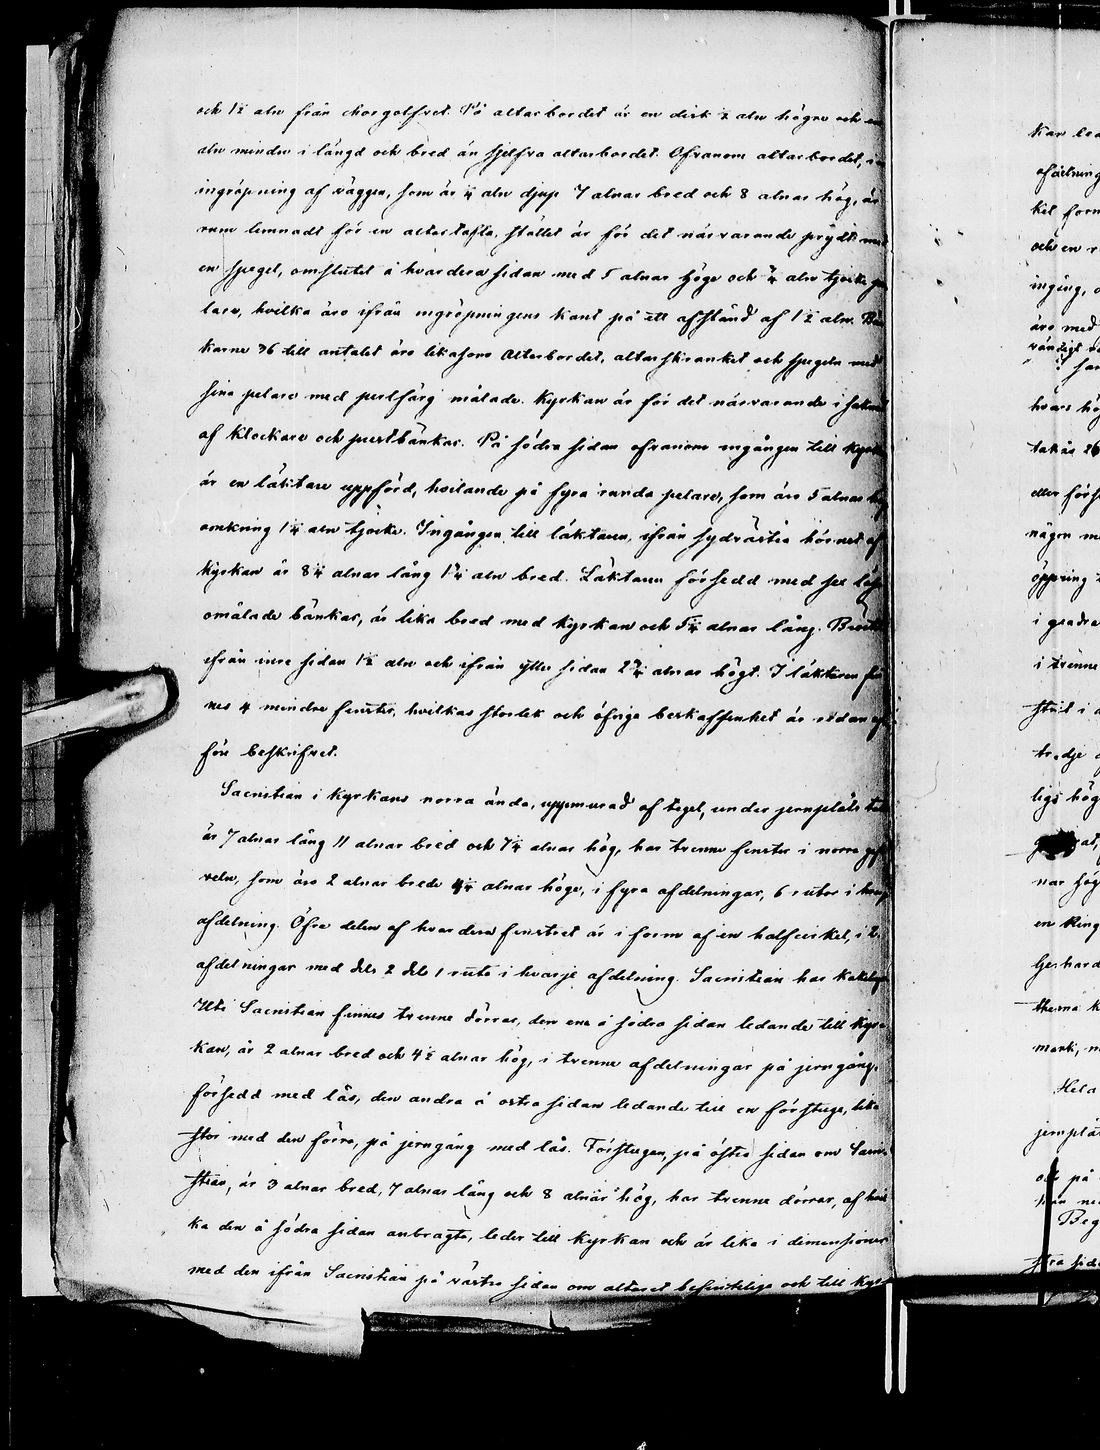 och 1½ aln från chorgolfvet. På altarbordet är en disk ½ aln högre och en
aln mindre i längd och bred än sjelfva altarbordet. Ofvanom altarbordet, i en
ingröpning af väggen, som är ¼ aln djup 7 alnar bred och 8 alnar hög, är
rum lemnadt för en altartafla, stället är för det närvarande prydt med
en spegel, omslutet å hvardera sidan med 5 alnar höga och ¾ aln tjocka pe
lare, hvilka äro ifrån ingröpningens kant på ett afstånd af 1½ aln. Bän
karne 36 till antalet äro likasom Altarbordet, altarskranket och spegeln med
sina pelare med perlfärg målade. Kyrkan är för det närvarande i saknad
af Klockare och prestbänkar. På södra sidan ofvanom ingången till Kyrkan
är en läktare uppförd, hvilande på fyra runda pelare, som äro 5 alnar hög
omkring 1¼ aln tjocka. Ingången till läktaren, ifrån sydvästra hörnet af
Kyrkan är 8¼ alnar lång 1¾ aln bred. Läktaren försedd med sex lösa
omålade bänkar, är lika bred med Kyrkan och 5¼ alnar lång. Bröstet
ifrån inre sidan 1½ aln och ifrån yttre sidan 2¾ alnar högt. I läktaren fin
nes 4 mindre fenster, hvilkas storlek och öfriga beskaffenhet är redan
före beskrifvet.
Sacristian i Kyrkans norra ända, uppmurad af tegel, under jernplåts tak
är 7 alnar lång 11 alnar bred och 7¼ alnar hög, har trenne fenster i norra gaf
veln, som äro 2 alnar breda 4¼ alnar höga, i fyra afdelningar, 6 rutor i hvarje
afdelning. Öfre delen af hvardera fenstret är i form af en halfcirkel, i 2
afdelningar med dels 2 dels 1 ruta i hvarje afdelning. Sacristian har kakelugn
Uti Sacristian finnes trenne dörrar, den ena å södra sidan ledande till Kyr
kan, är 2 alnar bred och 4½ alnar hög, i trenne afdelningar på jerngång,
försedd med lås, den andra å östra sidan ledande till en förstuga, lika
stor med den förra, på jerngång med lås. Förstugan, på östra sidan om Sacri
stian, är 3 alnar bred, 7 alnar lång och 8 alnar hög, har trenne dörrar, af hvil
ka den å södra sidan anbragte, leder till Kyrkan och är lika i dimensioner
med den ifrån Sacristian på västra sidan om altaret befintliga och till Kyr
kan
afdelning
ket
och en
ingång,
äro med
hvars
takås 26
eller
någon
öppning
i
i trenne
i
tredje
hög
nar hög
en
mark,
Hela
på
Beg